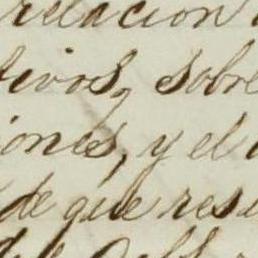 relacion
tivos, sobre
iones, y el
de que resu